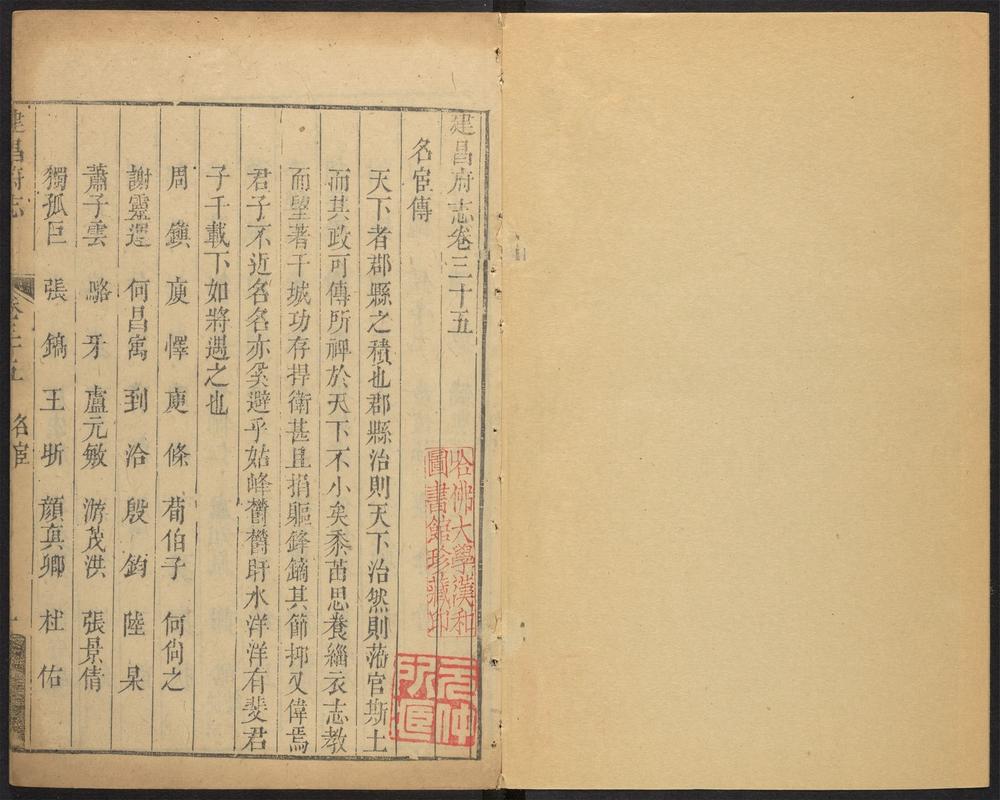 建昌府志卷三十五
名宦傳
天下者郡縣之積也郡縣治則天下治然則蒞官斯土
而其政可傳所裨於天下不小矣黍苗思養緇衣志教
而望著干城功存捍衛甚且捐軀鋒鏑其節抑又偉焉
君子不近名名亦奚避乎姑峰鬱鬱盱水洋洋有斐君
子千載下如將遇之也
周鎮 庾懌 庾條 荀伯子 何尙之
謝靈運 何昌寓 到洽 殷鈞 陸杲
蕭子雲 駱牙 盧元敏 游茂洪 張景倩
獨孤巨 張鎬 王昕 顔眞卿 杜佑
建昌府志 卷三十五 名宦 一
哈佛大學漢和
圖書館珍藏印
元仲
所